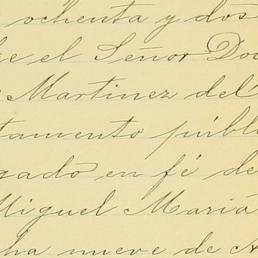 ochenta y dos
el Señor Do
Martinez del
tamento públ
gado en fé de
Miguel Mariá
ha nueve de A